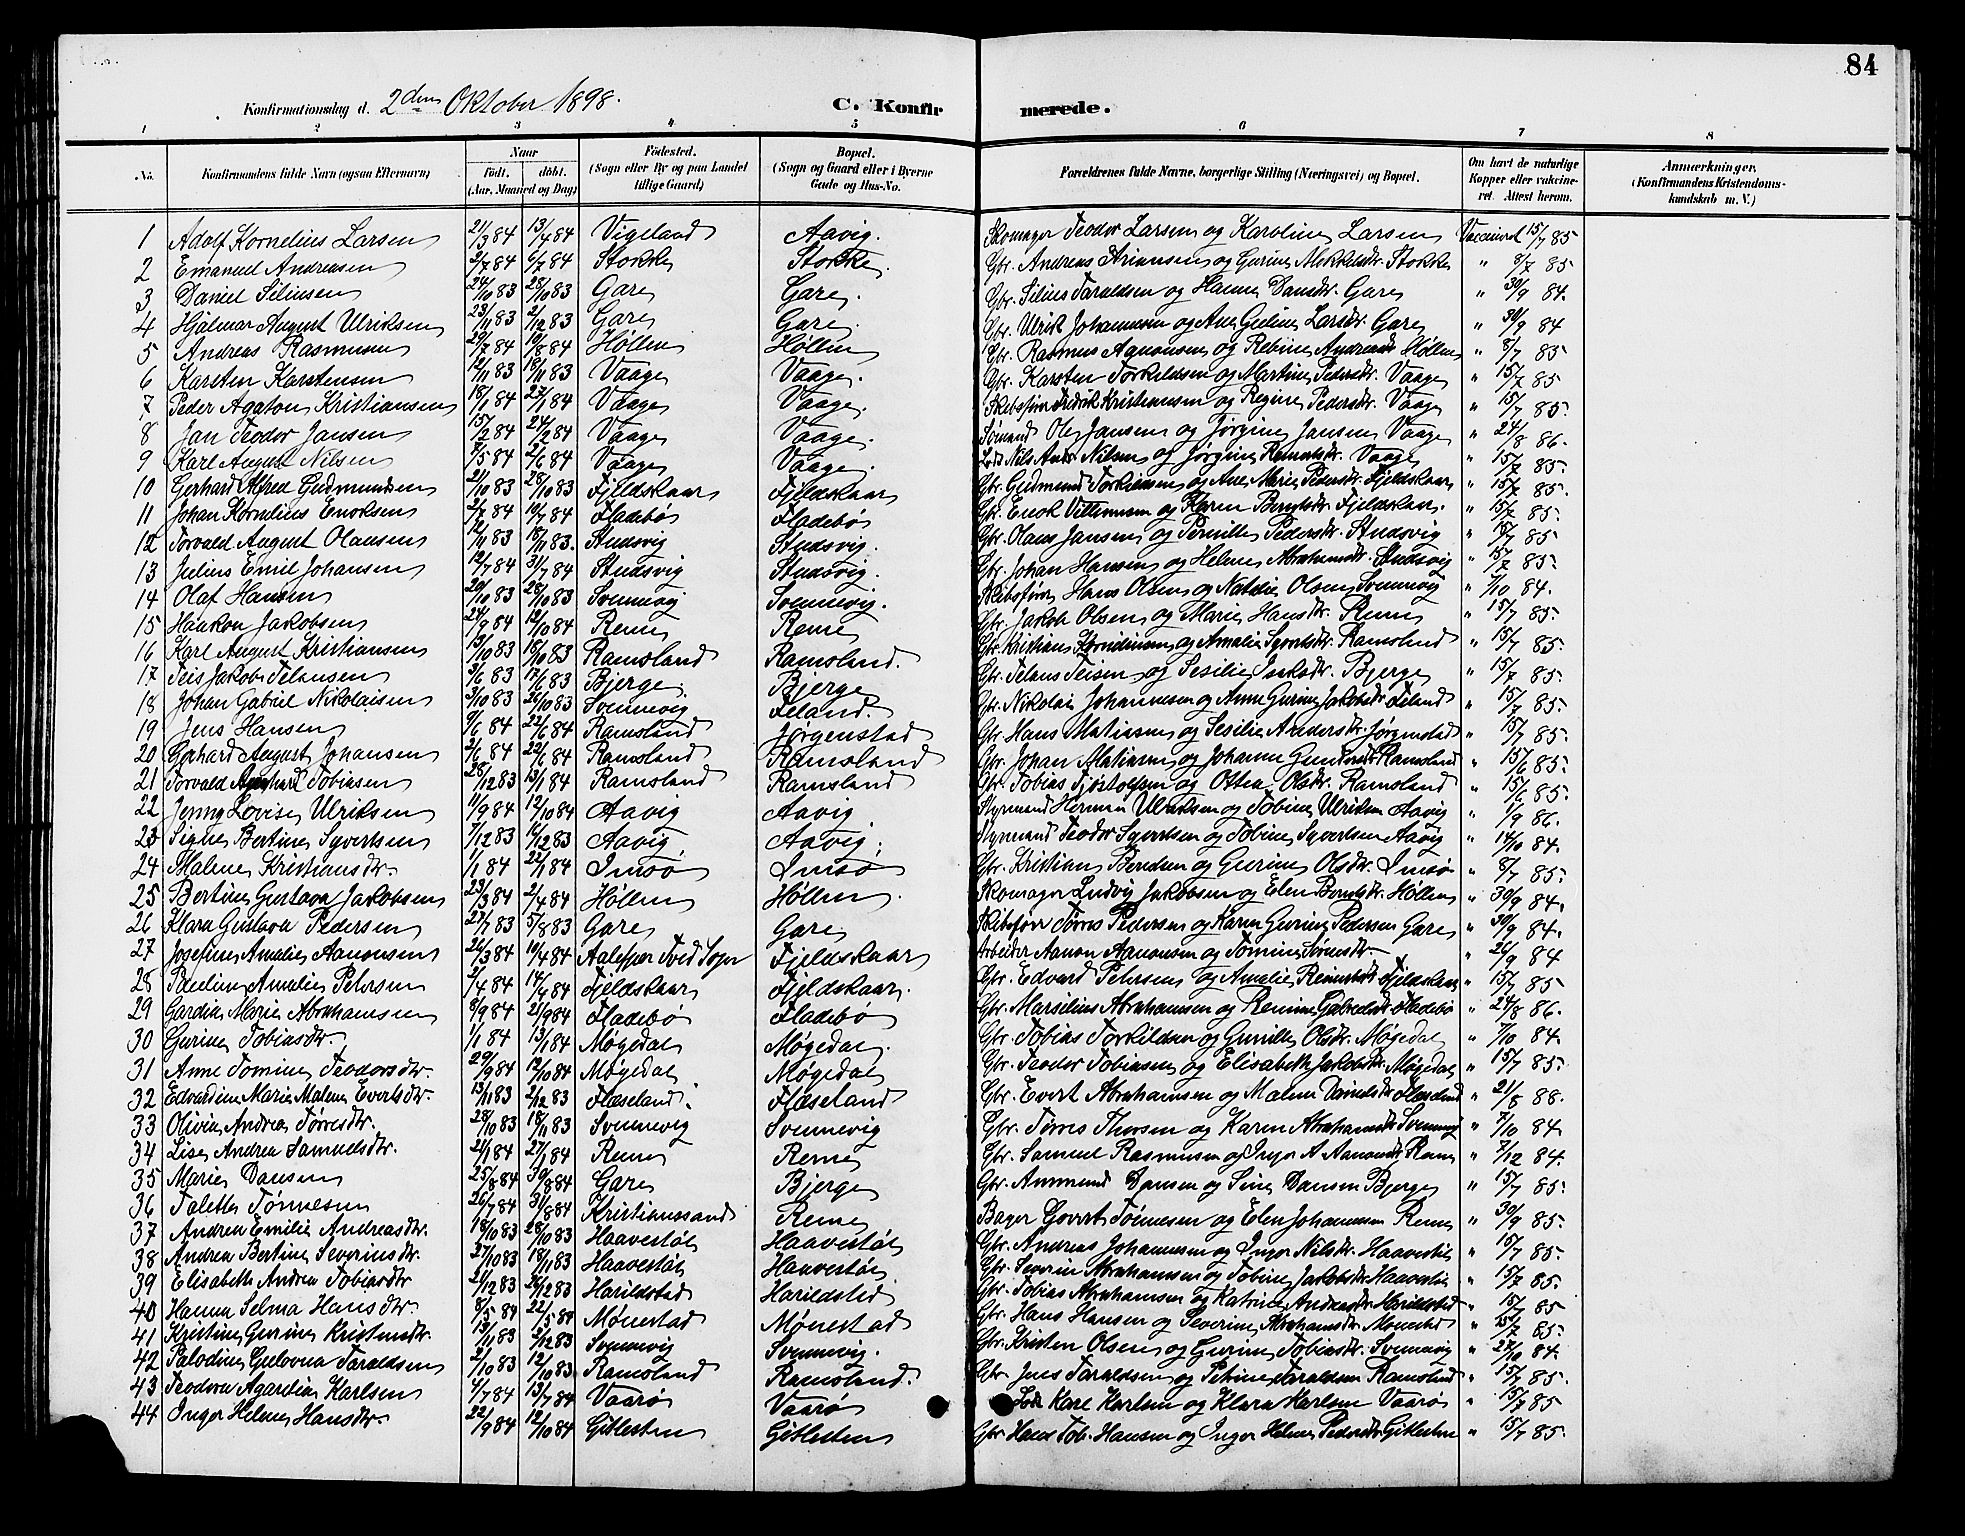 84
Konfirmationsdag d. 2den Oktober 1898. C. Konfirmerede.
1 2 3 4 5 6 7 8
No. Konfirmandens fulde Navn (ogsaa Efternavn) Naar Födt. döbt. (Aar, Maaned og Dag) Födested. (Sogn eller By og paa Landet tillige Gaard) Bopæl. (Sogn og Gaard eller i Byerne Gade og Hus-No. Forældrenes fulde Navne, borgerlige Stilling (Næringsvei) og Bopæl. Om havt de naturlige Kopper eller vakcineret. Attest herom. Anmærkninger. (Konfirmandens Kristendomskundskab m. V.)
1 Adolf Kornelius Larsen 21/3 84 13/4 84 Vigeland Aavig. Skomager Teodor Larsen og Karoline Larsen Vaccineret 15/7 85
2 Emanuel Andreasen 2/7 84 6/7 84 Stokke Stokke. Gbr. Andreas Ariansen og Gurine Mekkelsdtr. Stokke " 8/7 85
3 Daniel Siliusen 24/10 83 28/10 83 Gare Gare. Gbr. Silius Taraldsen og Hanne Dansdtr. Gare " 30/9 84.
4 Hjalmar August Ulriksen 23/11 83 2/12 83 Gare Gare. Gbr. Ulrik Johannesen og Ane Geline Larsdtr. Gare " 30/9 84
5 Andreas Rasmusen 29/7 84 10/8 84 Høllen Høllen Gbr. Rasmus Aanonsen og Rebine Andreasdtr Høllen " 8/7 85
6 Karsten Karstensen 12/11 83 18/11 83 Vaage Vaage. Gbr. Karsten Torkildsen og Martine Pedersdtr. Vaage " 15/7 85
7 Peder Agaton Kristiansen 18/1 84 27/1 84 Vaage Vaage. Skibsfører Fredrik Kristiansen og Regine Pedersdtr. Vaage " 15/7 85.
8 Jan Teodor Jansen 15/2 84 24/2 84 Vaage Vaage. Sømand Ole Jansen og Jørgine Jansen Vaage " 24/8 86.
9 Karl August Nilsen 7/5 84 2/6 84 Vaage Vaage. Lods Nils Andr. Nilsen og Jørgine Reinertsdtr. Vaage " 15/7 85.
10 Gerhard Alfred Gudmundsen 21/10 83 28/10 83 Fjeldskaar Fjeldskaar Gbr. Gudmund Torkildsen og Ane Marie Pedersdtr. Fjeldskaar " 15/7 85.
11 Johan Kornelius Enoksen 2/7 84 10/7 84 Fladebø Fladebø Gbr. Enok Villumsen og Karen Berntsdtr. Fjeldskaar. " 15/7 85.
12 Torvald August Olausen 12/11 83 18/11 83. Studsvig Studsvig. Gbr. Olaus Jansen og Pernille Pedersdtr. Studsvig " 15/7 85
13 Julius Emil Johansen 12/7 84 31/7 84 Studsvig Studsvig. Gbr. Johan Hansen og Helene Abrahamsdtr. Studsvig " 15/7 85.
14 Olaf Hansen 20/10 83 28/10 83 Svennevig Svennevig. Skibsfører Hans Olsen og Natalie Olsen Svennevig " 7/10 84.
15 Haakon Jakobsen 24/9 84 12/10 84 Reme Reme Gbr. Jakob Olsen og Marie Hansdtr. Reme " 15/7 85.
16 Karl August Kristiansen 13/10 83 18/10 83 Ramsland Ramsland. Gbr. Kristian Korneliusen og Amalie Syvertsdtr. Ramsland " 15/7 85.
17 Teis Jakob Telausen 3/6 83 17/6 83 Bjerge. Bjerge Gbr. Telaus Teisen og Sesilie Isaksdtr. Bjerge " 15/7 85.
18 Johan Gabriel Nikolaisen 3/10 83 21/10 83 Svennevig Feland. Gbr. Nikolai Johannesen og Anne Gurine Jakobsdtr. Feland " 15/7 85.
19 Jens Hansen 9/6 84 22/6 84 Ramsland Jørgenstad Gbr. Hans Matiasen og Sesilie Andersdtr. Jørgenstad " 15/7 85.
20 Gerhard August Johansen 2/6 84 22/6 84 Ramsland Ramsland Gbr. Johan Matiasen og Johanne Ramsland " 15/6 85.
21 Torvald Tobiasen 28/12 83 13/1 84 Ramsland Ramsland Gbr. Tobias Tjøstolfsen og Ottea Olsdtr. Ramsland " 15/6 85.
22 Jenny Lovise Ulriksen 11/9 84 12/10 84 Aavig Aavig. Styrmand Herman Ulriksen og Tobine Ulriksen Aavig " 1/9 86.
23 Signe Bertine Syvertsen 7/12 83 16/12 83 Aavig. Aavig. Styrmand Teodor Syvertsen og Tobine Syvertsen Aavig " 14/10 84.
24 Malene Kristiansdtr. 1/1 84 22/1 84 Imsø Imsø Gbr. Kristian Berndsen og Gurine Olsdtr. Imsø " 8/7 85.
25 Bertine Gustava Jakobsen 23/3 84 2/4 84 Høllen Høllen. Skomager Ludvig Jakobsen og Elen Berntsdtr. Høllen " 30/9 84.
26 Klara Gustava Pedersen 27/7 83 5/8 83 Gare Gare Skibsfører Tørres Pedersen og Karen Gurine Pedersen Gare " 30/9 84.
27 Josefine Amalie Aanonsen 26/3 84 10/4 84 Tved Sogn Fjeldskaar Arbeider Aanon Aanonsen og Tomine Sørensdtr. " 26/9 84
28 Pauline Amalie Petersen 2/4 84 14/4 84 Fjeldskaar Fjeldskaar. Gbr. Edvard Petersen og Amalie Reinertsdtr Fjeldskaar " 15/7 85
29 Gardia Marie Abrahamsen 8/9 84 21/9 84 Fladebø Fladebø Gbr. Marselius Abrahamsen og Remine Gabrielsdtr Fladebø " 24/8 86.
30 Gurine Tobiasdtr. 1/1 84 13/1 84 Møgedal Møgedal. Gbr. Tobias Torkildsen og Gunille Olsdtr. Møgedal " 7/10 84.
31 Anne Tomine Teodorsdtr. 29/9 84 12/10 84 Møgedal Møgedal Gbr. Teodor Tobiasen og Elisabeth Jakobsdtr Møgedal " 15/7 85.
32 Edvardine Marie Malene Evertsdtr. 13/11 83 2/12 83 Flæseland. Flæseland Gbr. Evert Abrahamsen og Malene Danielsdtr Flæseland " 21/8 88.
33 Olivia Andrea Tørresdtr. 28/10 83 18/11 83 Svennevig Svennevig Gbr. Tørres Thorsen og Karen Abrahamsdtr Svennevig " 7/10 84.
34 Lise Andrea Samuelsdtr. 21/1 84 27/1 84 Reme Reme Gbr. Samuel Rasmusen og Inger A Aanonsdtr Reme " 7/12 84.
35 Marie Dansen 25/8 84 30/8 84 Gare Bjerge Gbr. Ammund Dansen og Sine Dansen Bjerge " 15/7 85.
36 Talette Tønnesen 26/7 84 31/8 84 Kristianssand Reme Bager Govert Tönnesen og Elen Johannesen Reme " 30/9 85.
37 Andrea Emilie Andreasdtr. 18/10 83 28/10 83 Haavestøl Haavestøl Gbr. Andreas Johannesen og Inger Nilsdtr. Haavestøl " 15/7 85.
38 Andrea Bertine Severinsdtr. 27/10 83 18/11 83 Haavestøl Haavestøl Gbr. Severin Abrahamsen og Tobine Jakobsdtr Haavestøl " 15/7 85.
39 Elisabeth Andrea Tobiasdtr 21/12 83 26/12 83 Harildstad Harildstad Gbr. Tobias Abrahamsen og Katrine Andreasdtr Harildstad " 15/7 85
40 Hanna Selma Hansdtr. 8/5 84 22/5 84 Mønestad Mønestad Gbr. Hans Hansen og Severine Abrahamsdtr Mønestad " 25/7 85.
41 Kristine Gurine Kristensdtr. 19/11 83 2/12 83 Svennevig Svennevig. Gbr. Kristen Olsen og Gurine Tobiasdtr. Svennevig " 27/10 84.
42 Palodine Gulovna Taraldsen 2/10 83 12/10 83 Ramsland Ramsland. Gbr. Jens Taraldsen og Petrine Taraldsen Ramsland " 15/7 85.
43 Teodora Agardia Karlsen 4/7 84 13/7 84 Vaarø Vaarø Lods Karl Karlsen og Klara Karlsen Vaarø " 15/7 85
44 Inger Helene Hansdtr. 22/9 84 12/10 84 Gitlesten Gitlesten Gbr. Hans Tob. Hansen og Inger Helene Pedersdtr Gitlesten " 15/7 85.